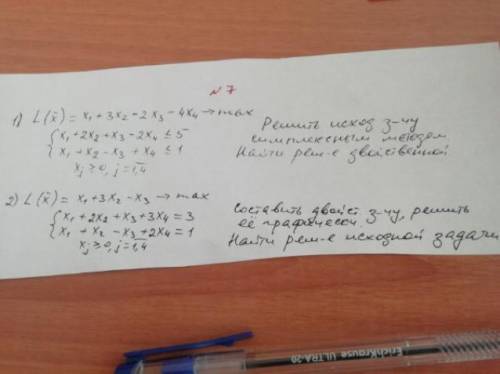 №7
1) L(x̄) = x₁ + 3x₂ - 2x₃ - 4x₄ → max
{ x₁ + 2x₂ + x₃ - 2x₄ ≤ 5
x₁ + x₂ - x₃ + x₄ ≤ 1
xⱼ ≥ 0, j = 1,4
Решить исход з-чу
симплексным методом
Найти реш-е двойственной
2) L(x̄) = x₁ + 3x₂ - x₃ → max
{ x₁ + 2x₂ + x₃ + 3x₄ = 3
x₁ + x₂ - x₃ + 2x₄ = 1
xⱼ ≥ 0, j = 1,4
составить двойст з-чу, решить
её графически.
Найти реш-е исходной задачи
ErichKrause ULTRA-20